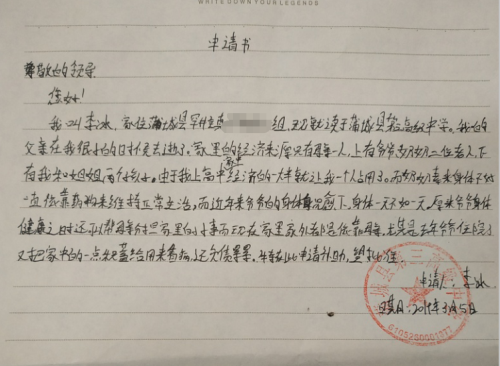 WRITE DOWN YOUR LEGENDS
申请书
尊敬的领导
您好!
我叫李冰,家住蒲城县罕井镇 组,现就读于蒲城县第三高级中学。我的
父亲在我很小的时候就去逝了。家里的经济来源只有母亲一人,上有爷爷奶奶二位老人,下
有我和姐姐两个孩子。由于我上高中家中经济的一大半就让我一个人占用了。而奶奶身体不好
一直依靠药物来维持正常生活,而近年来爷爷的身体每况愈下,身体一天不如一天,原来爷爷身体
健康之时还可以帮母亲分担家里的事而现在家里家外都依靠母亲,尤其是去年爷爷住院了
又把家中的一点积蓄给用来看病,还欠债累累。特在此申请补助,望批准
申请人:李冰
日期:2019年3月5日
蒲城县第三高级中学
6105260001377